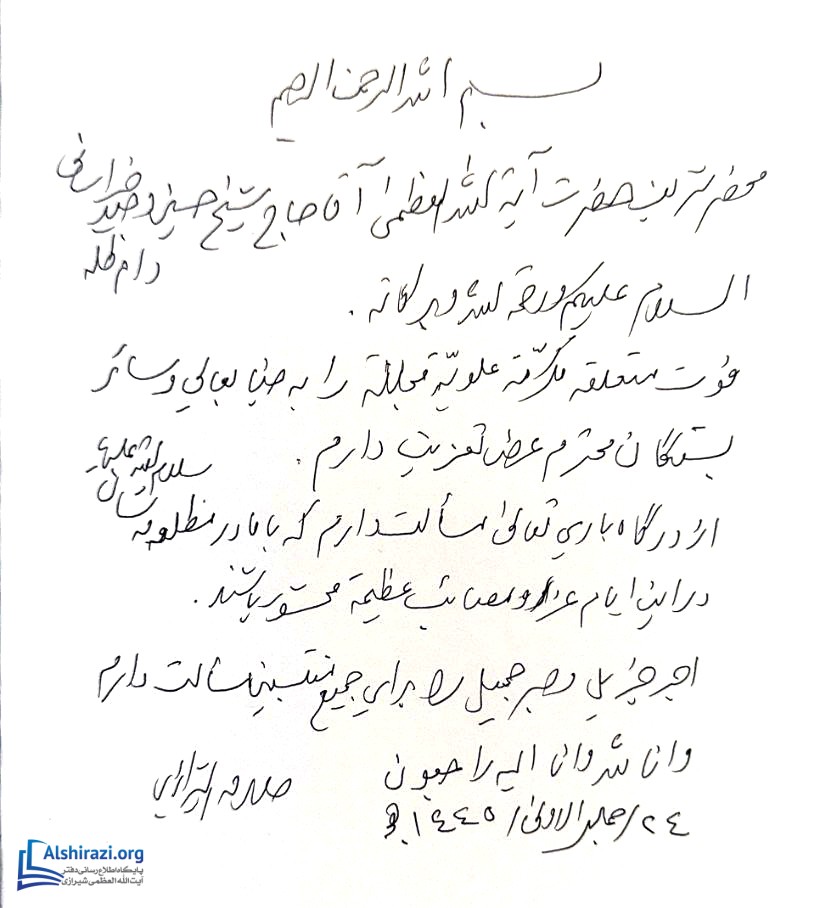 بسم الله الرحمن الرحیم
محضر شریف حضرت آیة الله العظمیٰ آقا حاج شیخ حسین وحید خراسانی
دام ظله
السلام علیکم ورحمة الله وبرکاته .
فوت متعلقه مکرّمة علویّة مجللة را به جنابعالي وسائر
بستگان محترم عرض تعزیت دارم .
از درگاه باري تعالیٰ مسألت دارم که با مادر مظلومه شان سلام الله علیها
در این ایام عزا و مصائب عظیمة محشور باشند .
اجر جزیل و صبر جمیل را براي جمیع منتسبین مسألت دارم
وانا لله وانا الیه راجعون
صادق الشیرازي
٢٤/جمادى الاولىٰ/١٤٤٥ هـ
Alshirazi.org
پایگاه اطلاع رسانی دفتر
آیت الله العظمی شیرازی